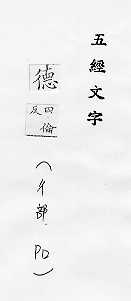 五經文字
德
四倫
反
（彳部. PD）